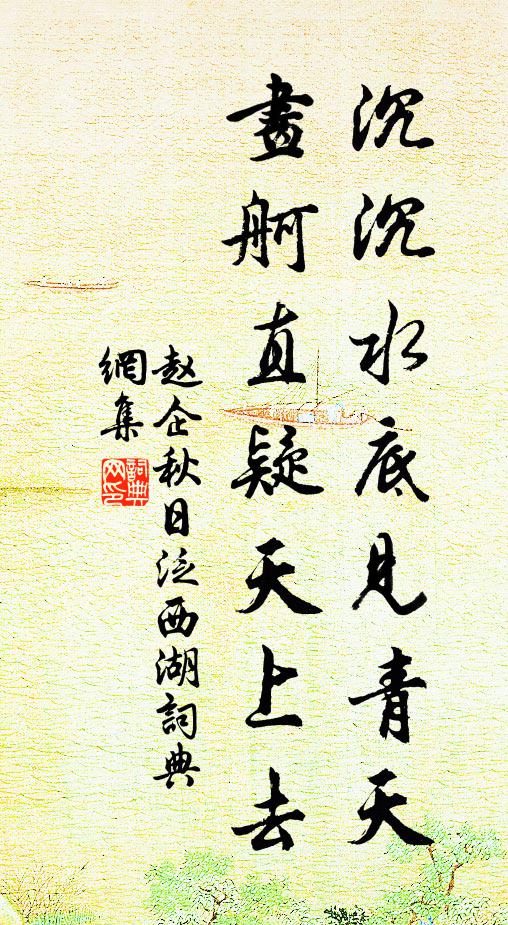 沉沉水底見青天
畫舸直疑天上去
赵企秋日泛西湖詞典
網集
詞典
网印